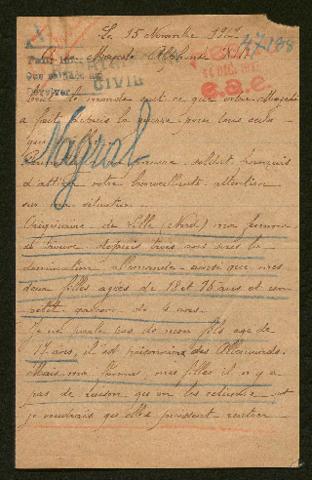 Le 15 Novembre 1917
47108
A sa Majesté Alphonse XIII
CIVIL
tout le monde sait ce que votre Majesté
a fait depuis la guerre pour tous ceux
qui
soldat français
d'attirer votre bienveillante attention
sur ma situation.
Originaire de Lille (Nord) ma femme
se trouve depuis trois ans sous la
domination allemande ainsi que mes
deux filles agées de 18 et 16 ans et un
petit garçon de 4 ans.
Je ne parle pas de mon fils agé de
17 ans, il est prisonnier des Allemands.
Mais ma femme, mes filles il n'y a
pas de raison que on les retienne et
je voudrais qu'elles puissent rentrer